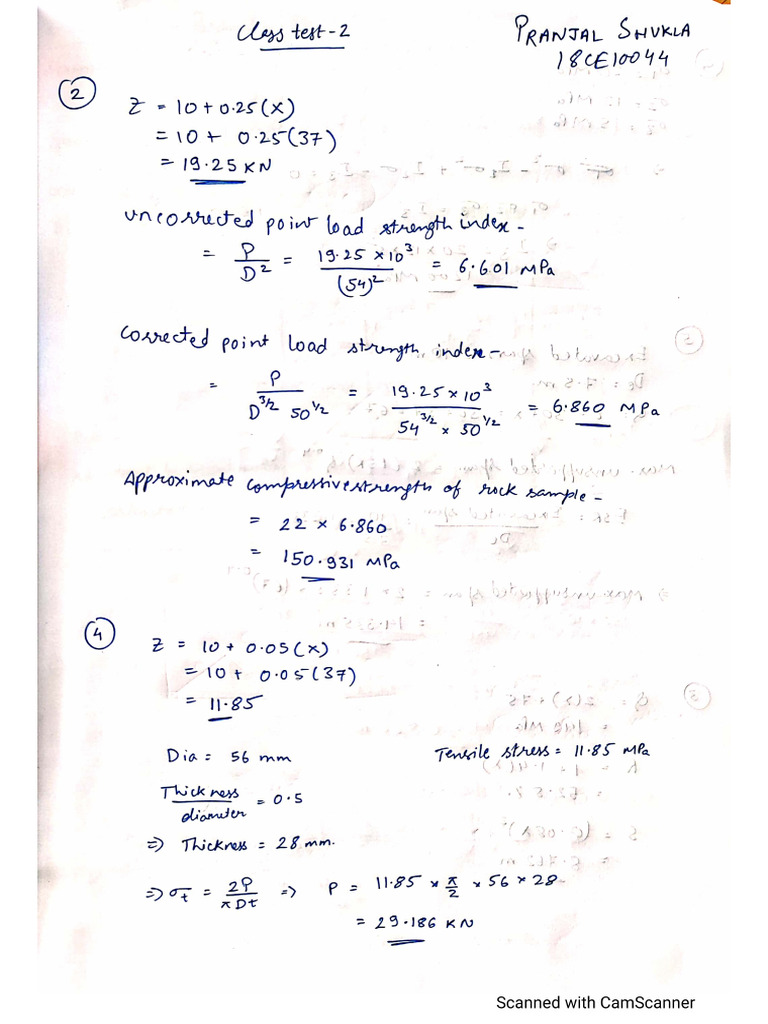 Class test-2
PRANJAL SHUKLA
18CE10044
2
Z = 10+0.25(X)
= 10+ 0.25(37)
= 19.25 KN
uncorrected point load strength index-
= P/D² = 19.25 ×10³/(54)² = 6.601 MPa
Corrected point load strength, index-
= P/D^3/2 50^1/2 = 19.25×10³/54^3/2 × 50^1/2 = 6.860 MPa
Approximate compressive strength of rock sample-
= 22 × 6.860
= 150.931 MPa
4
Z = 10+ 0.05(X)
= 10+ 0.05(37)
= 11.85
Dia = 56 mm
Tensile stress = 11.85 MPa
Thickness/diameter = 0.5
⇒ Thickness = 28 mm.
⇒ σt = 2P/πDt ⇒ P = 11.85 × π/2 × 56 × 28
= 29.186 KN
Scanned with CamScanner